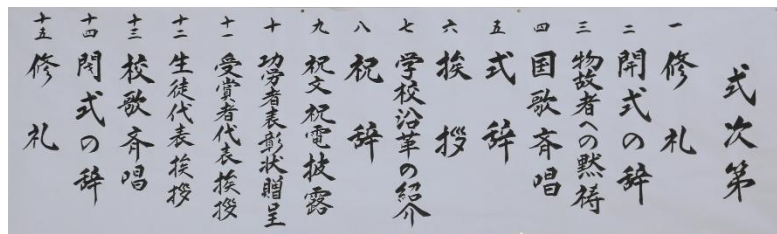 式次第
一 修礼
二 開式の辞
三 物故者への黙祷
四 国歌斉唱
五 式辞
六 挨拶
七 学校沿革の紹介
八 祝辞
九 祝文祝電披露
十 功労者表彰状贈呈
十一 受賞者代表挨拶
十二 生徒代表挨拶
十三 校歌斉唱
十四 閉式の辞
十五 修礼